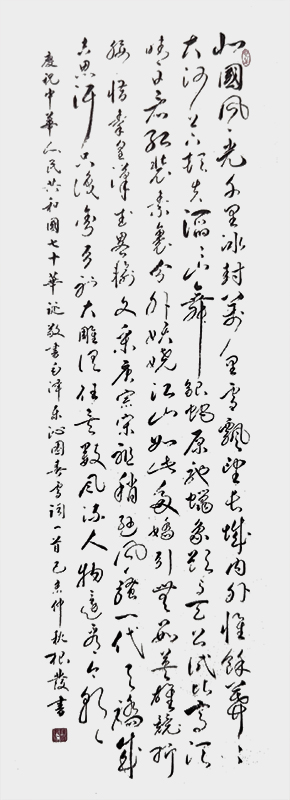 北國風光千里冰封萬里雪飄望長城内外惟餘莽〻
大河上下頓失滔〻山舞銀蛇原馳蠟象欲与天公試比高須
晴日看紅裝素裹分外妖嬈江山如此多嬌引無數英雄競折
腰惜秦皇漢武略輸文采唐宗宋祖稍遜風騷一代天驕成
吉思汗只識彎弓射大雕俱往矣數風流人物還看今朝
慶祝中華人民共和國七十華誕敬書毛澤东沁園春雪词一首己亥仲秋根發書